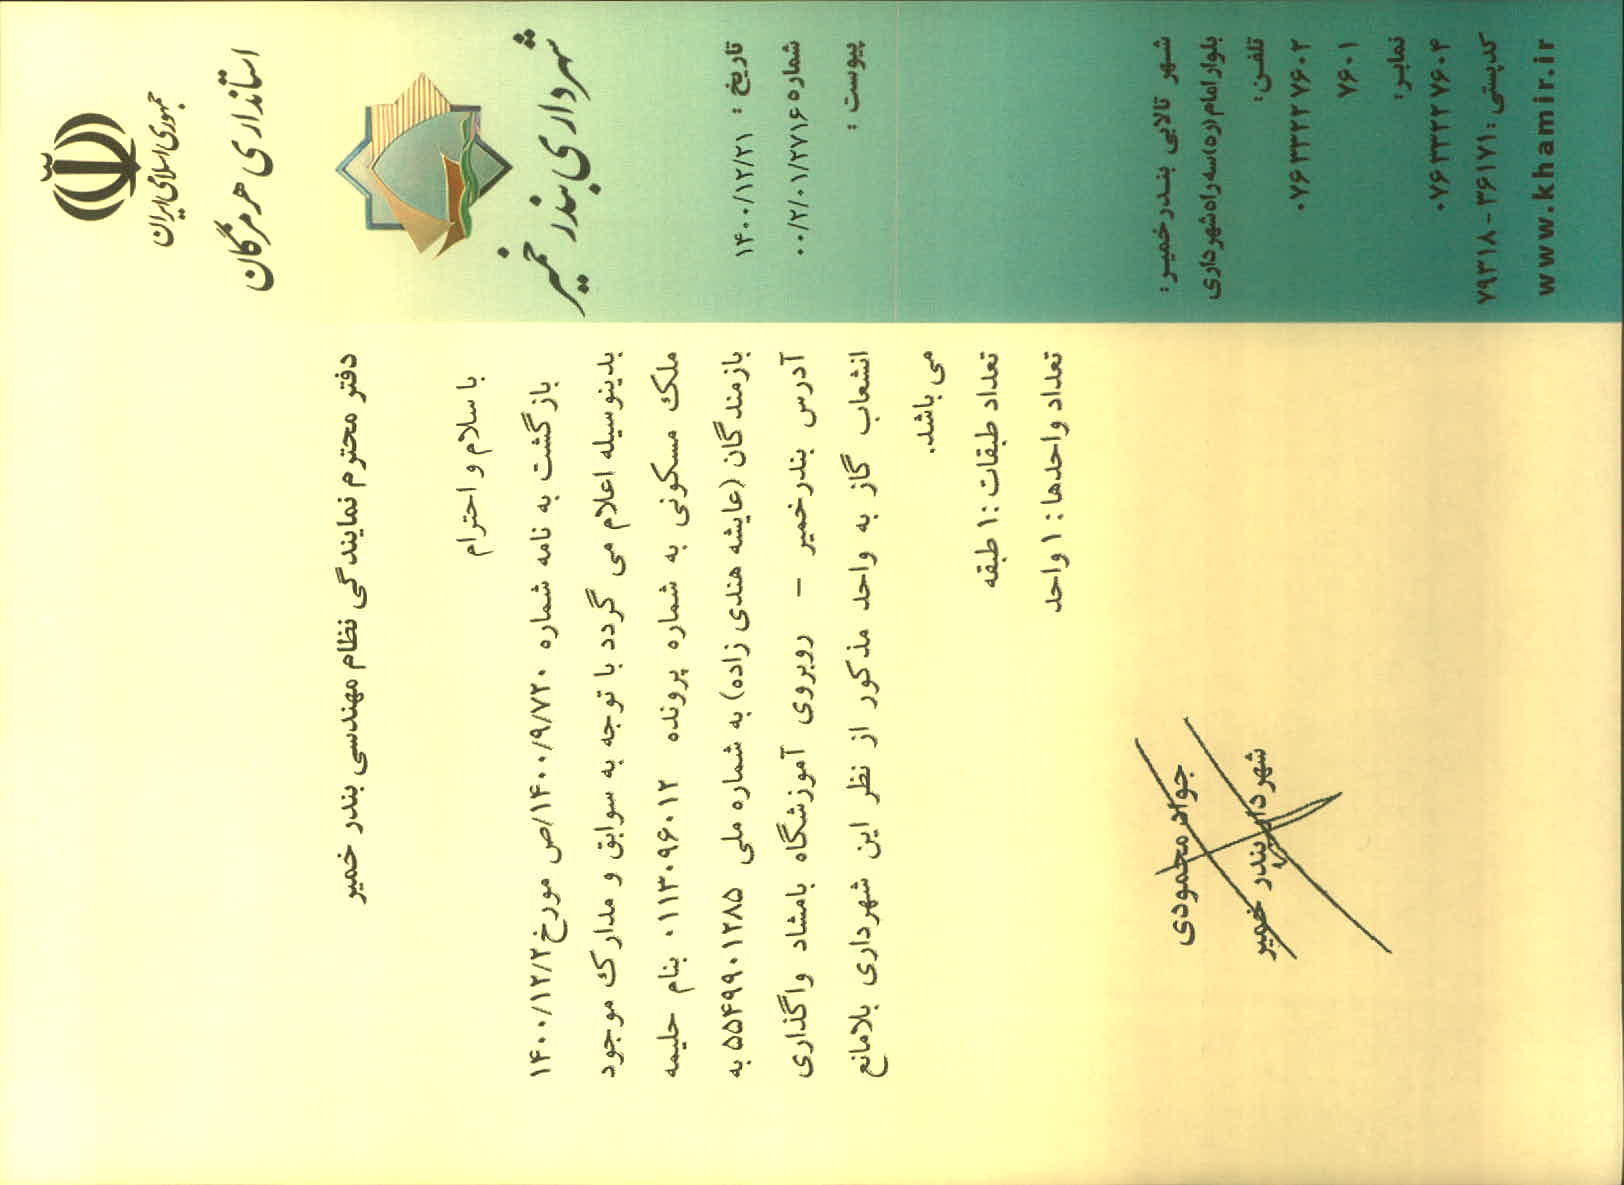 جمهوری اسلامی ایران
استانداری هرمزگان
شهرداری بندر خمیر
تاریخ : ۱۴۰۰/۱۲/۲۱
شماره ۰۰/۲/۰۱/۲۷۱۶
پیوست :
دفتر محترم نمایندگی نظام مهندسی بندر خمیر
با سلام و احترام
بازگشت به نامه شماره ۱۴۰۰/۹/۷۲۰/ص مورخ ۱۴۰۰/۱۲/۲
بدینوسیله اعلام می گردد با توجه به سوابق و مدارک موجود
ملک مسکونی به شماره پرونده ۰۱۱۳۰۹۶۰۱۲ بنام حلیمه
بازمندگان (عایشه هندی زاده) به شماره ملی ۵۵۴۹۹۰۱۲۸۵ به
آدرس بندرخمیر - روبروی آموزشگاه بامشاد واگذاری
انشعاب گاز به واحد مذکور از نظر این شهرداری بلامانع
می باشد.
تعداد طبقات :۱ طبقه
تعداد واحدها : ۱ واحد
جواد محمودی
شهردار بندر خمیر
شهر تالابی بندرخمیر:
بلوار امام(ره)سه راه شهرداری
تلفن:
۰۷۶۳۳۲۲۷۶۰۲
۷۶۰۱
نمابر:
۰۷۶۳۳۲۲۷۶۰۴
کدپستی: ۳۶۱۷۱ - ۷۹۳۱۸
www.khamir.ir